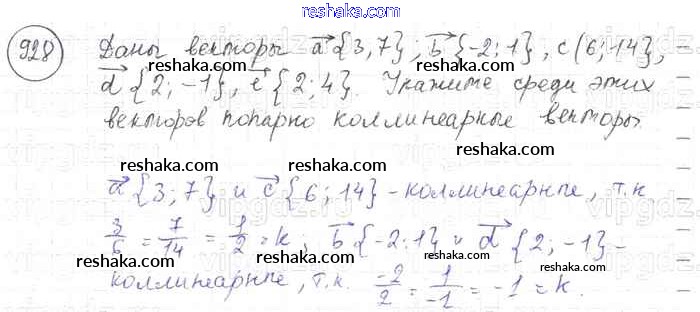 reshaka.com
928 Даны векторы a⃗{3,7}; b⃗{-2;1}, c(6;14),
reshaka.com reshaka.com
d⃗{2;-1}, e⃗{2;4}. Укажите среди этих
reshaka.com reshaka.com
векторов попарно коллинеарные векторы
reshaka.com
a⃗{3;7} и c⃗{6;14} - коллинеарные, т.к
reshaka.com reshaka.com
3/6 = 7/14 = 1/2 = k; b⃗{-2;1} и d⃗{2;-1} -
reshaka.com reshaka.com
коллинеарные, т.к. -2/2 = 1/-1 = -1 = k.
reshaka.com